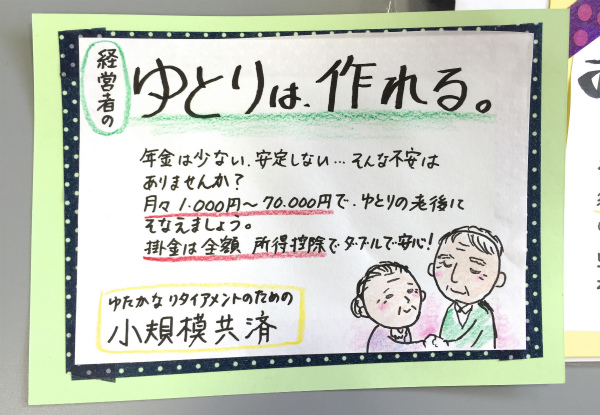 経営者の
ゆとりは、作れる。
年金は少ない、安定しない…そんな不安は
ありませんか?
月々1.000円～70.000円で、ゆとりの老後に
そなえましょう。
掛金は全額 所得控除でダブルで安心!
ゆたかな リタイアメントのための
小規模共済